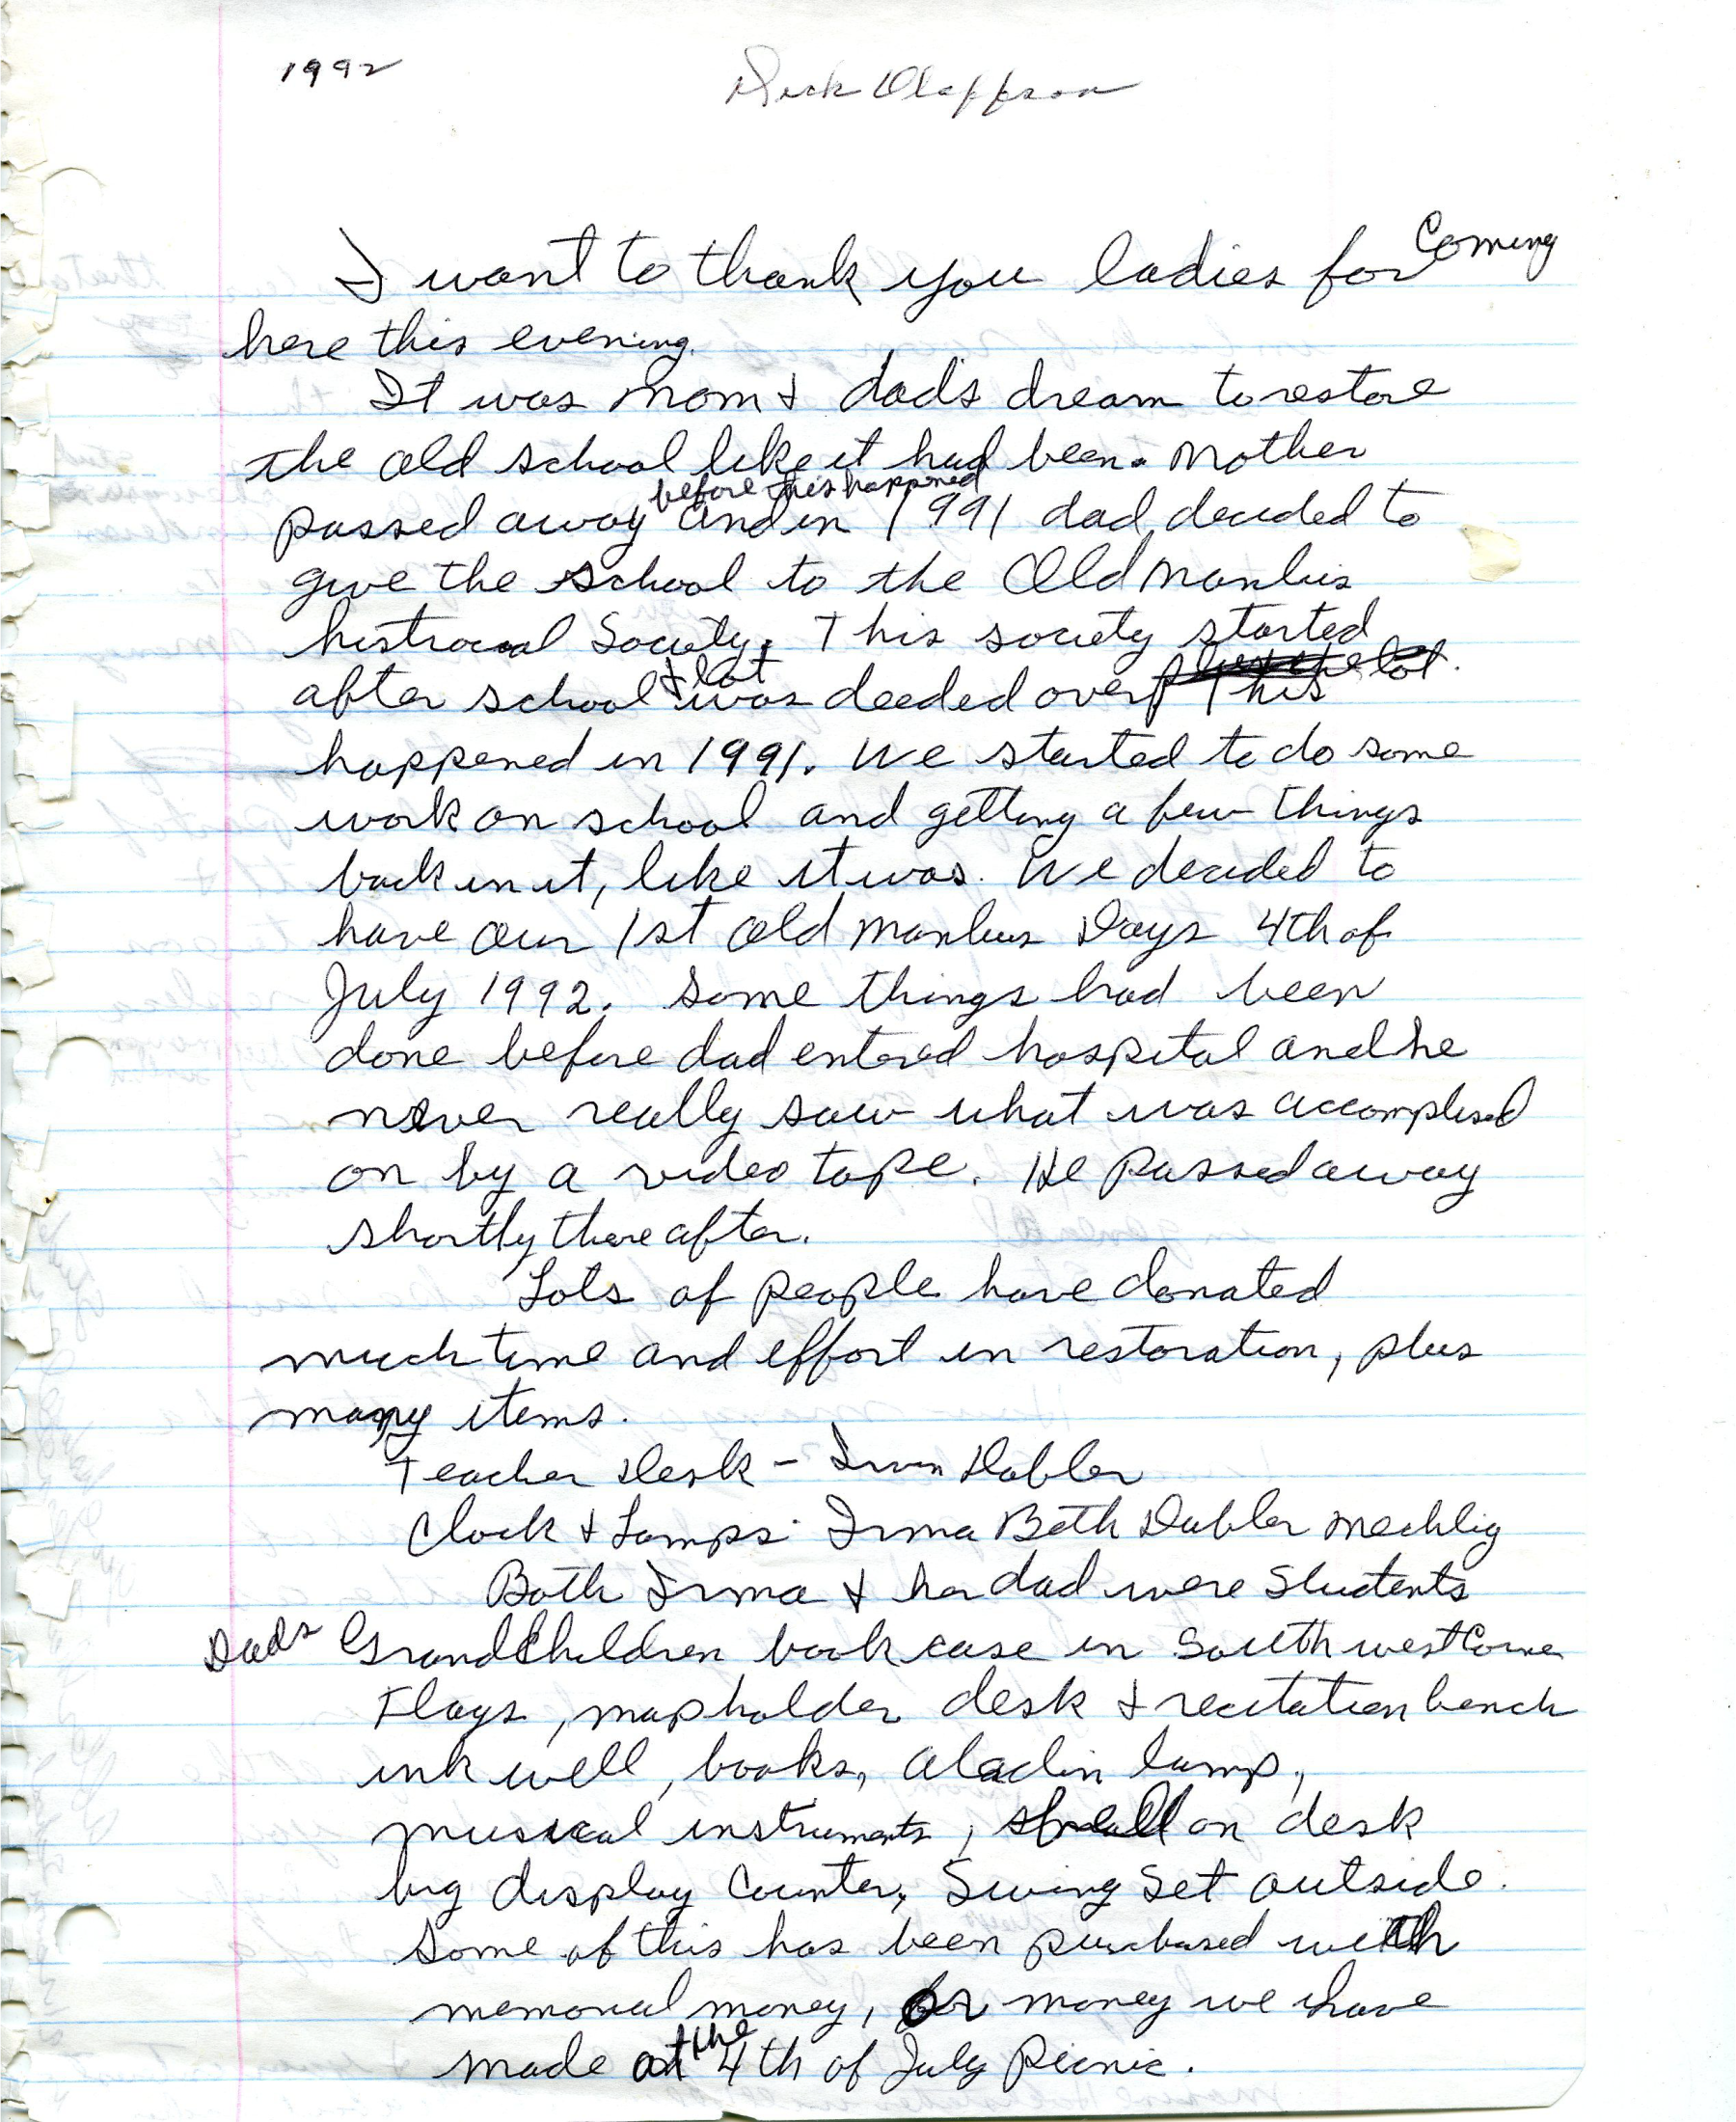 1992
Dick Olaffson
I want to thank you ladies for Coming
here this evening.
It was Mom & dad's dream to restore
the old school like it had been. Mother
passed away before this happened and in 1991 dad decided to
give the school to the Old Manlius
histrocal Society. This society started
after school & lot was deeded over. This
happened in 1991. We started to do some
work on school and getting a few things
back in it, like it was. We decided to
have our 1st Old Manlius Days 4th of
July 1992. Some things had been
done before dad entered hospital and he
never really saw what was accomplised
on by a video tape. He passed away
shortly thereafter.
Lots of people have donated
much time and effort in restoration, plus
many items.
Teacher Desk - Irvin Dabler
Clock & Lamps - Irma Beth Dabler Mechlig
Both Irma & her dad were Students
Dads Grandchildren book case in Southwest Corner
Flags, map holder desk & recitation bench
ink well, books, aladin lamp,
musical instruments, small on desk
big display Counter, Swing Set outside.
Some of this has been purchased with
memorial money, or money we have
made at the 4th of July Picnic.